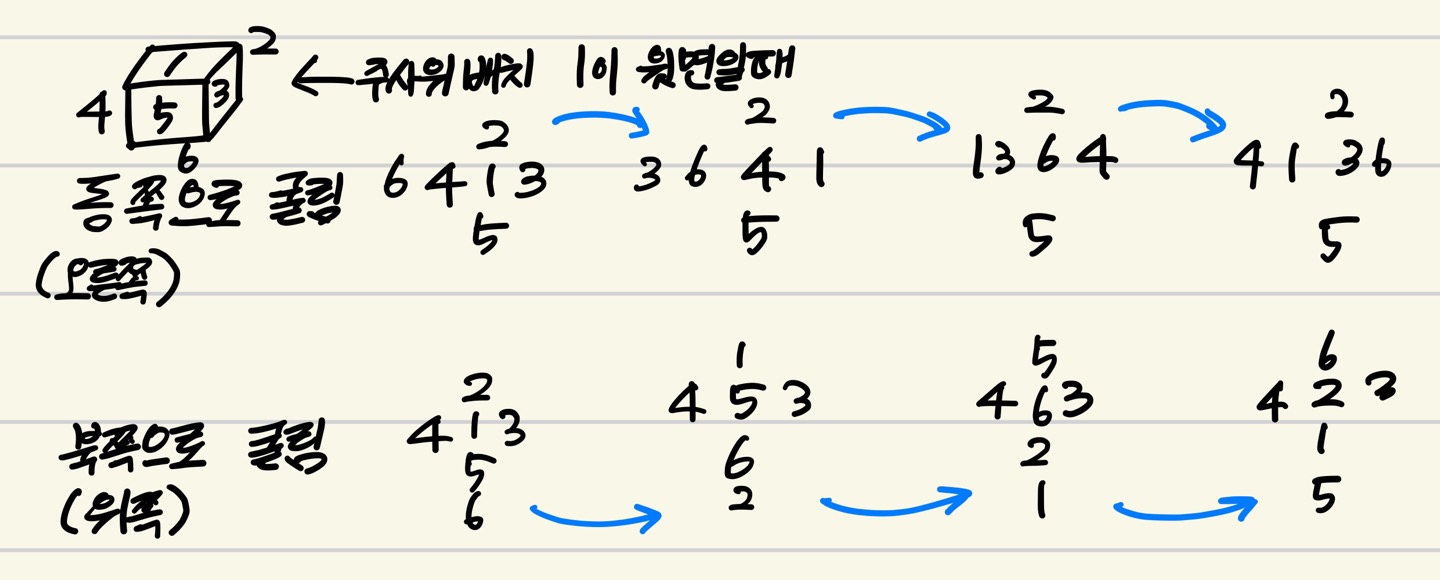 2
1
4 5 3
6
← 주사위 배치 1이 윗면일때
동쪽으로 굴림
(오른쪽)
2
6 4 1 3
5
2
3 6 4 1
5
2
1 3 6 4
5
2
4 1 3 6
5
북쪽으로 굴림
(위쪽)
2
4 1 3
5
6
1
4 5 3
6
2
5
4 6 3
2
1
6
4 2 3
1
5